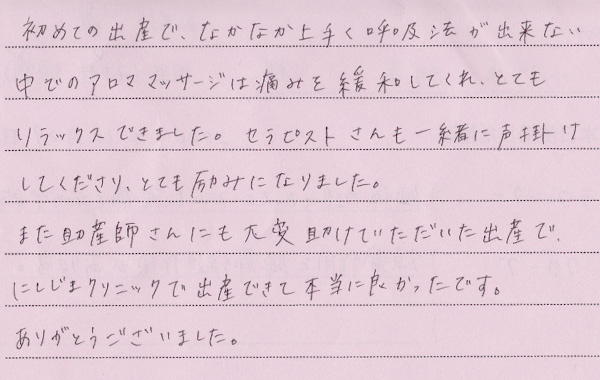 初めての出産で、なかなか上手く呼吸法が出来ない
中でのアロママッサージは痛みを緩和してくれ、とても
リラックスできました。セラピストさんも一緒に声掛け
してくださり、とても励みになりました。
また助産師さんにも大変助けていただいた出産で、
にしじまクリニックで出産できて本当に良かったです。
ありがとうございました。